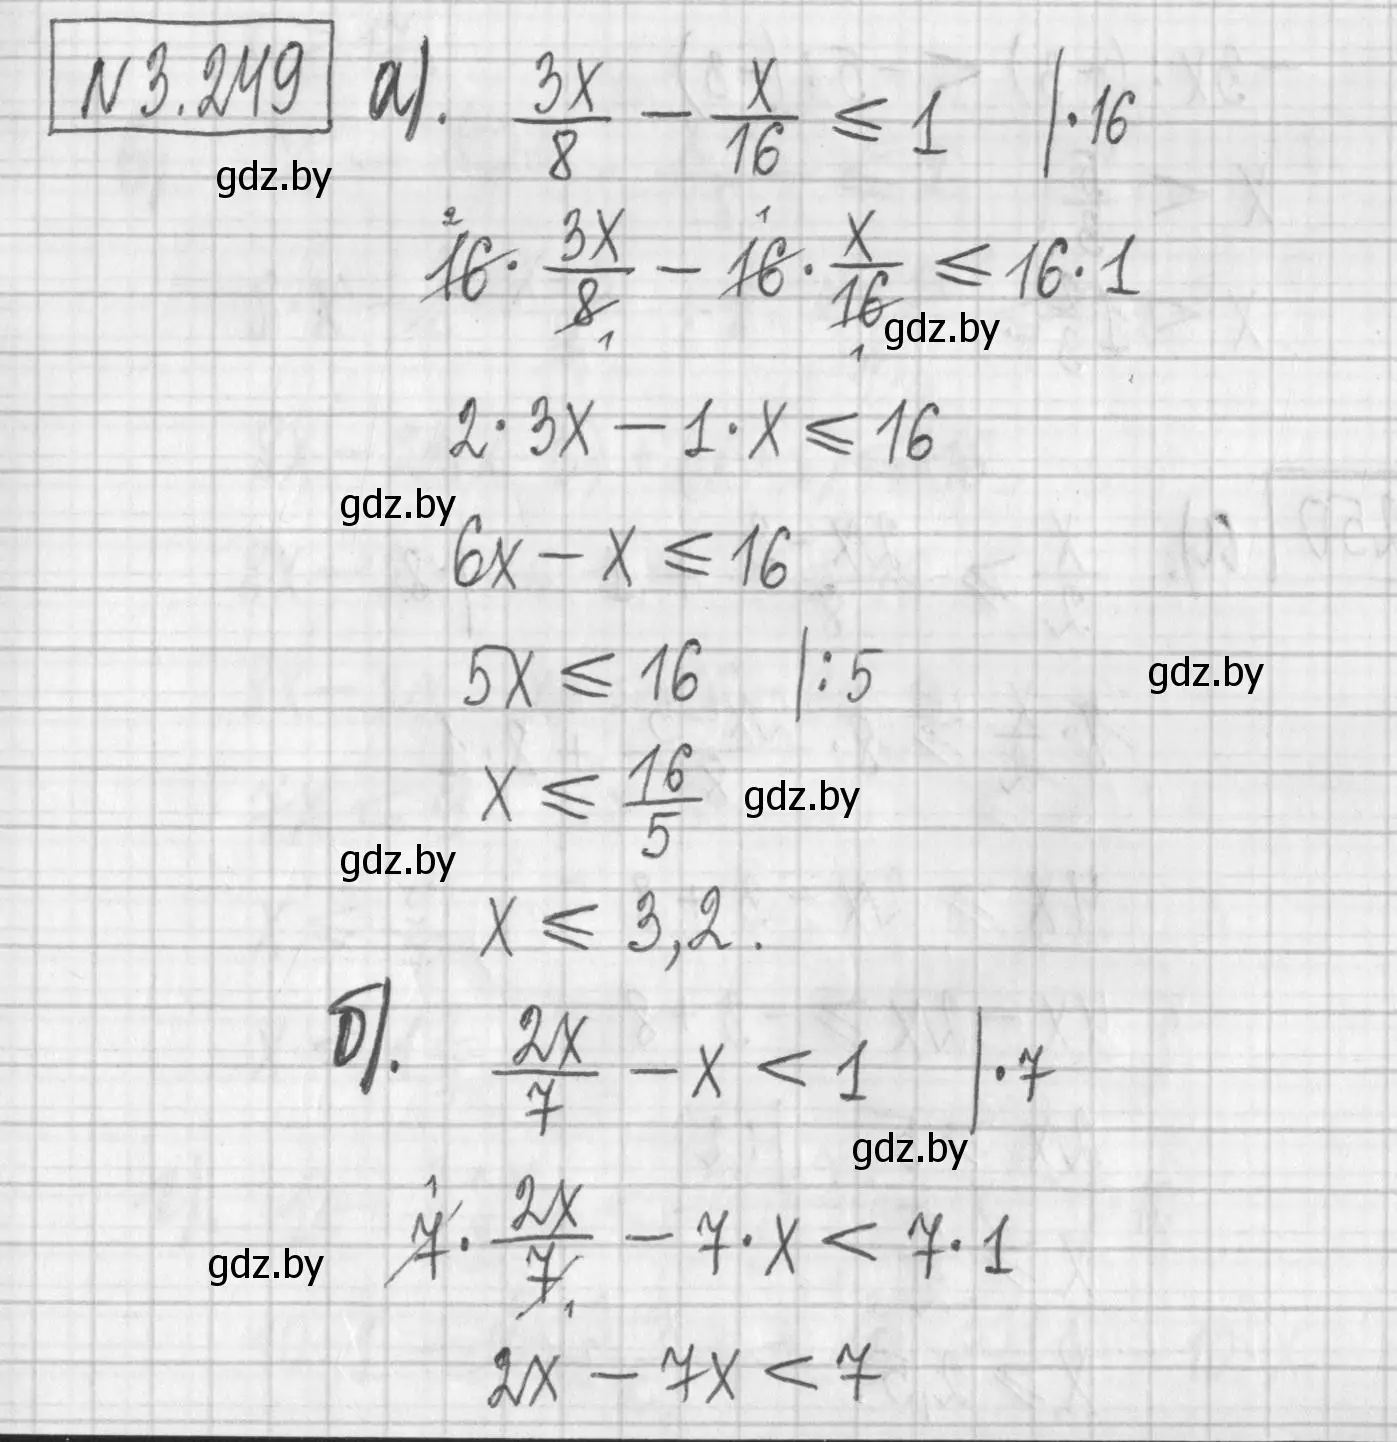 N3.249 а). 3x/8 − x/16 ⩽ 1 |·16
gdz.by
2 1
16 · 3x/8 − 16 · x/16 ⩽ 16 · 1
gdz.by
1 1
2 · 3x − 1 · x ⩽ 16
gdz.by
6x − x ⩽ 16
5x ⩽ 16 |:5
gdz.by
x ⩽ 16/5
gdz.by
gdz.by
x ⩽ 3,2.
б). 2x/7 − x < 1 |·7
gdz.by
1
7 · 2x/7 − 7 · x < 7 · 1
gdz.by
1
2x − 7x < 7